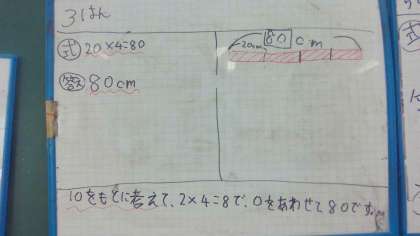 3はん
式 20×4=80
答え 80cm
20cm
80cm
10をもとに考えて、2×4=8で、0をあわせて80です。